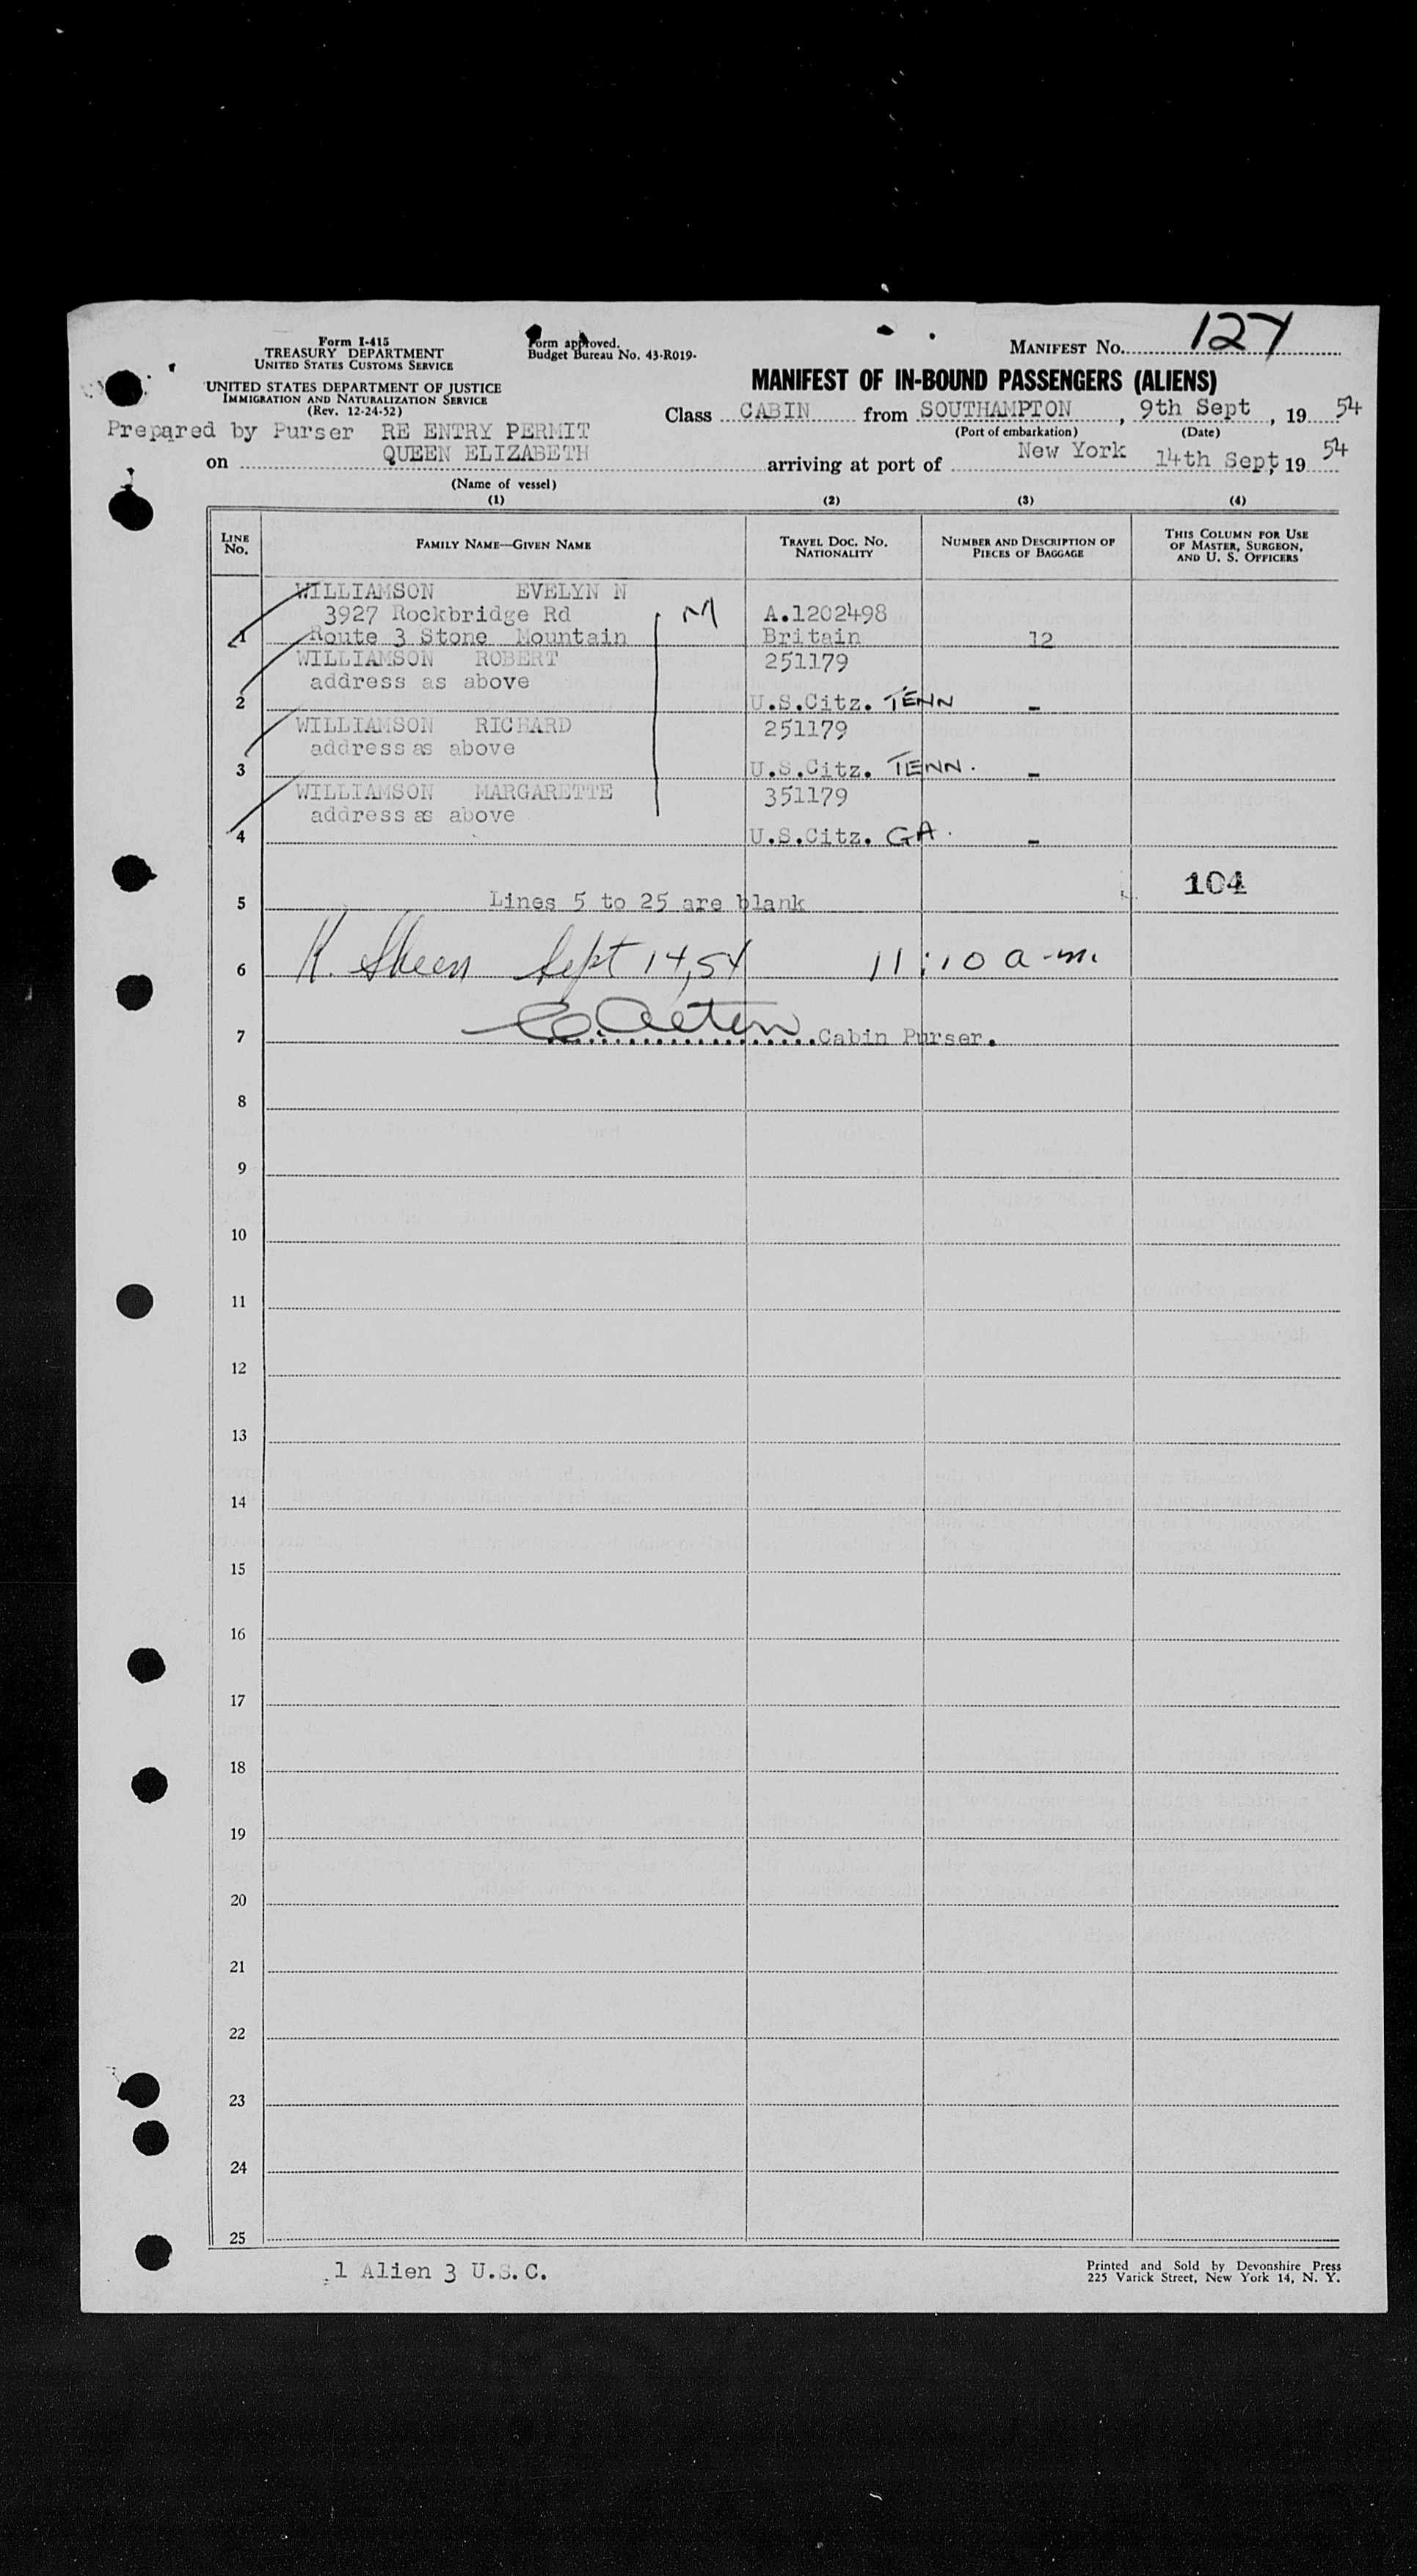 Form I-415
TREASURY DEPARTMENT
UNITED STATES CUSTOMS SERVICE
UNITED STATES DEPARTMENT OF JUSTICE
IMMIGRATION AND NATURALIZATION SERVICE
(Rev. 12-24-52)
Form approved.
Budget Bureau No. 43-R019-
MANIFEST NO. 127
MANIFEST OF IN-BOUND PASSENGERS (ALIENS)
Class CABIN from SOUTHAMPTON, 9th Sept, 19 54
(Port of embarkation) (Date)
Prepared by Purser RE ENTRY PERMIT
on QUEEN ELIZABETH arriving at port of New York 14th Sept, 19 54
(Name of vessel)
(1) (2) (3) (4)
LINE NO. FAMILY NAME—GIVEN NAME TRAVEL DOC. NO. NATIONALITY NUMBER AND DESCRIPTION OF PIECES OF BAGGAGE THIS COLUMN FOR USE OF MASTER, SURGEON, AND U. S. OFFICERS
WILLIAMSON EVELYN N
3927 Rockbridge Rd M A.1202498
1 Route 3 Stone Mountain Britain 12
WILLIAMSON ROBERT 251179
address as above
2 U.S.Citz. TENN -
WILLIAMSON RICHARD 251179
address as above
3 U.S.Citz. TENN. -
WILLIAMSON MARGARETTE 351179
address as above
4 U.S.Citz. GA. -
104
5 Lines 5 to 25 are blank
6 K. Sheen Sept 14, 54 11:10 a.m.
7 Cabin Purser.
8
9
10
11
12
13
14
15
16
17
18
19
20
21
22
23
24
25
1 Alien 3 U.S.C.
Printed and Sold by Devonshire Press
225 Varick Street, New York 14, N. Y.